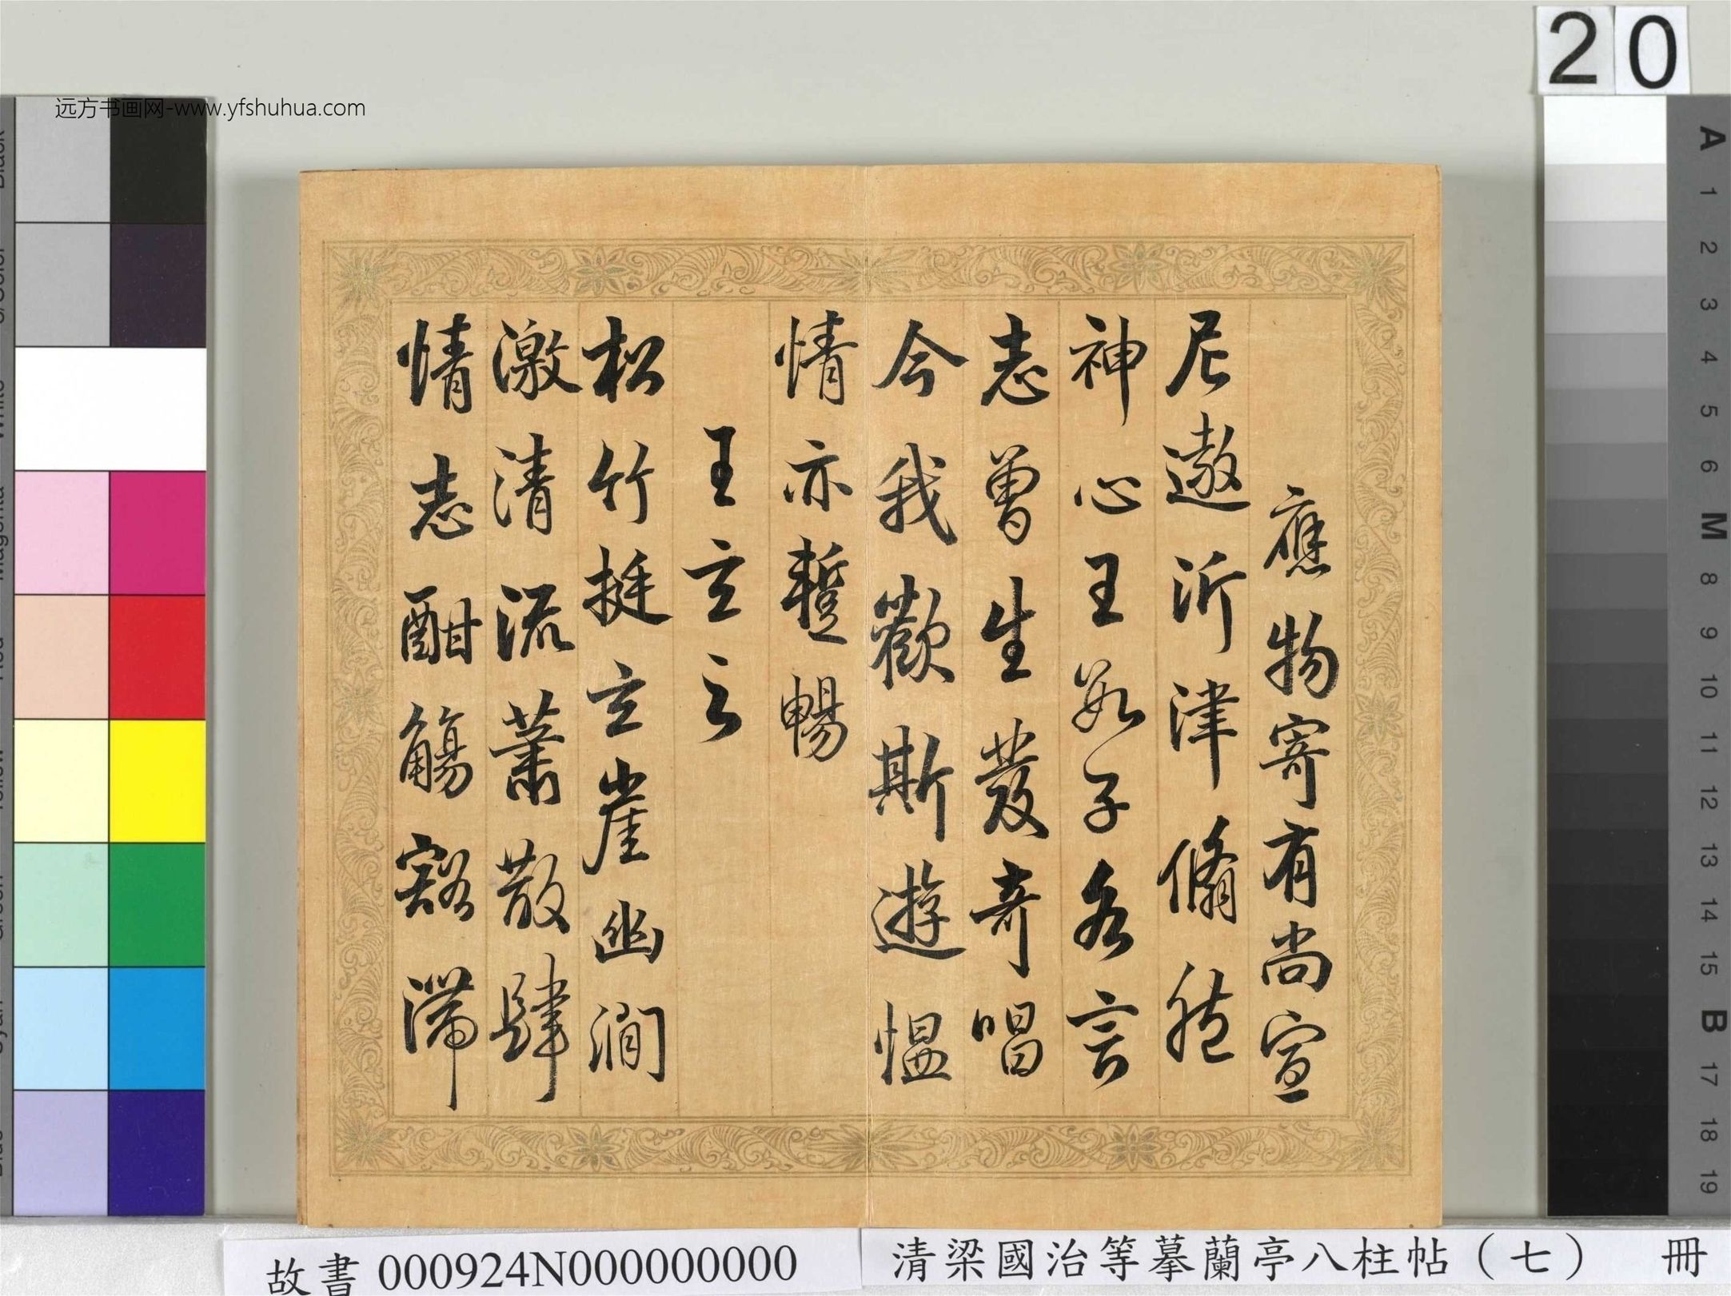 远方书画网-www.yfshuhua.com
20
應物寄有尚宣
尼遨沂津翛然
神心王數子各言
志曾生發奇唱
今我歡斯遊慍
情亦蹔暢
王玄之
松竹挺玄崖幽澗
激清流蕭散肆
情志酣觴豁滯
故書 000924N000000000
清梁國治等摹蘭亭八柱帖（七） 冊
A
1
2
3
4
5
6
M
8
9
10
11
12
13
14
15
B
17
18
19